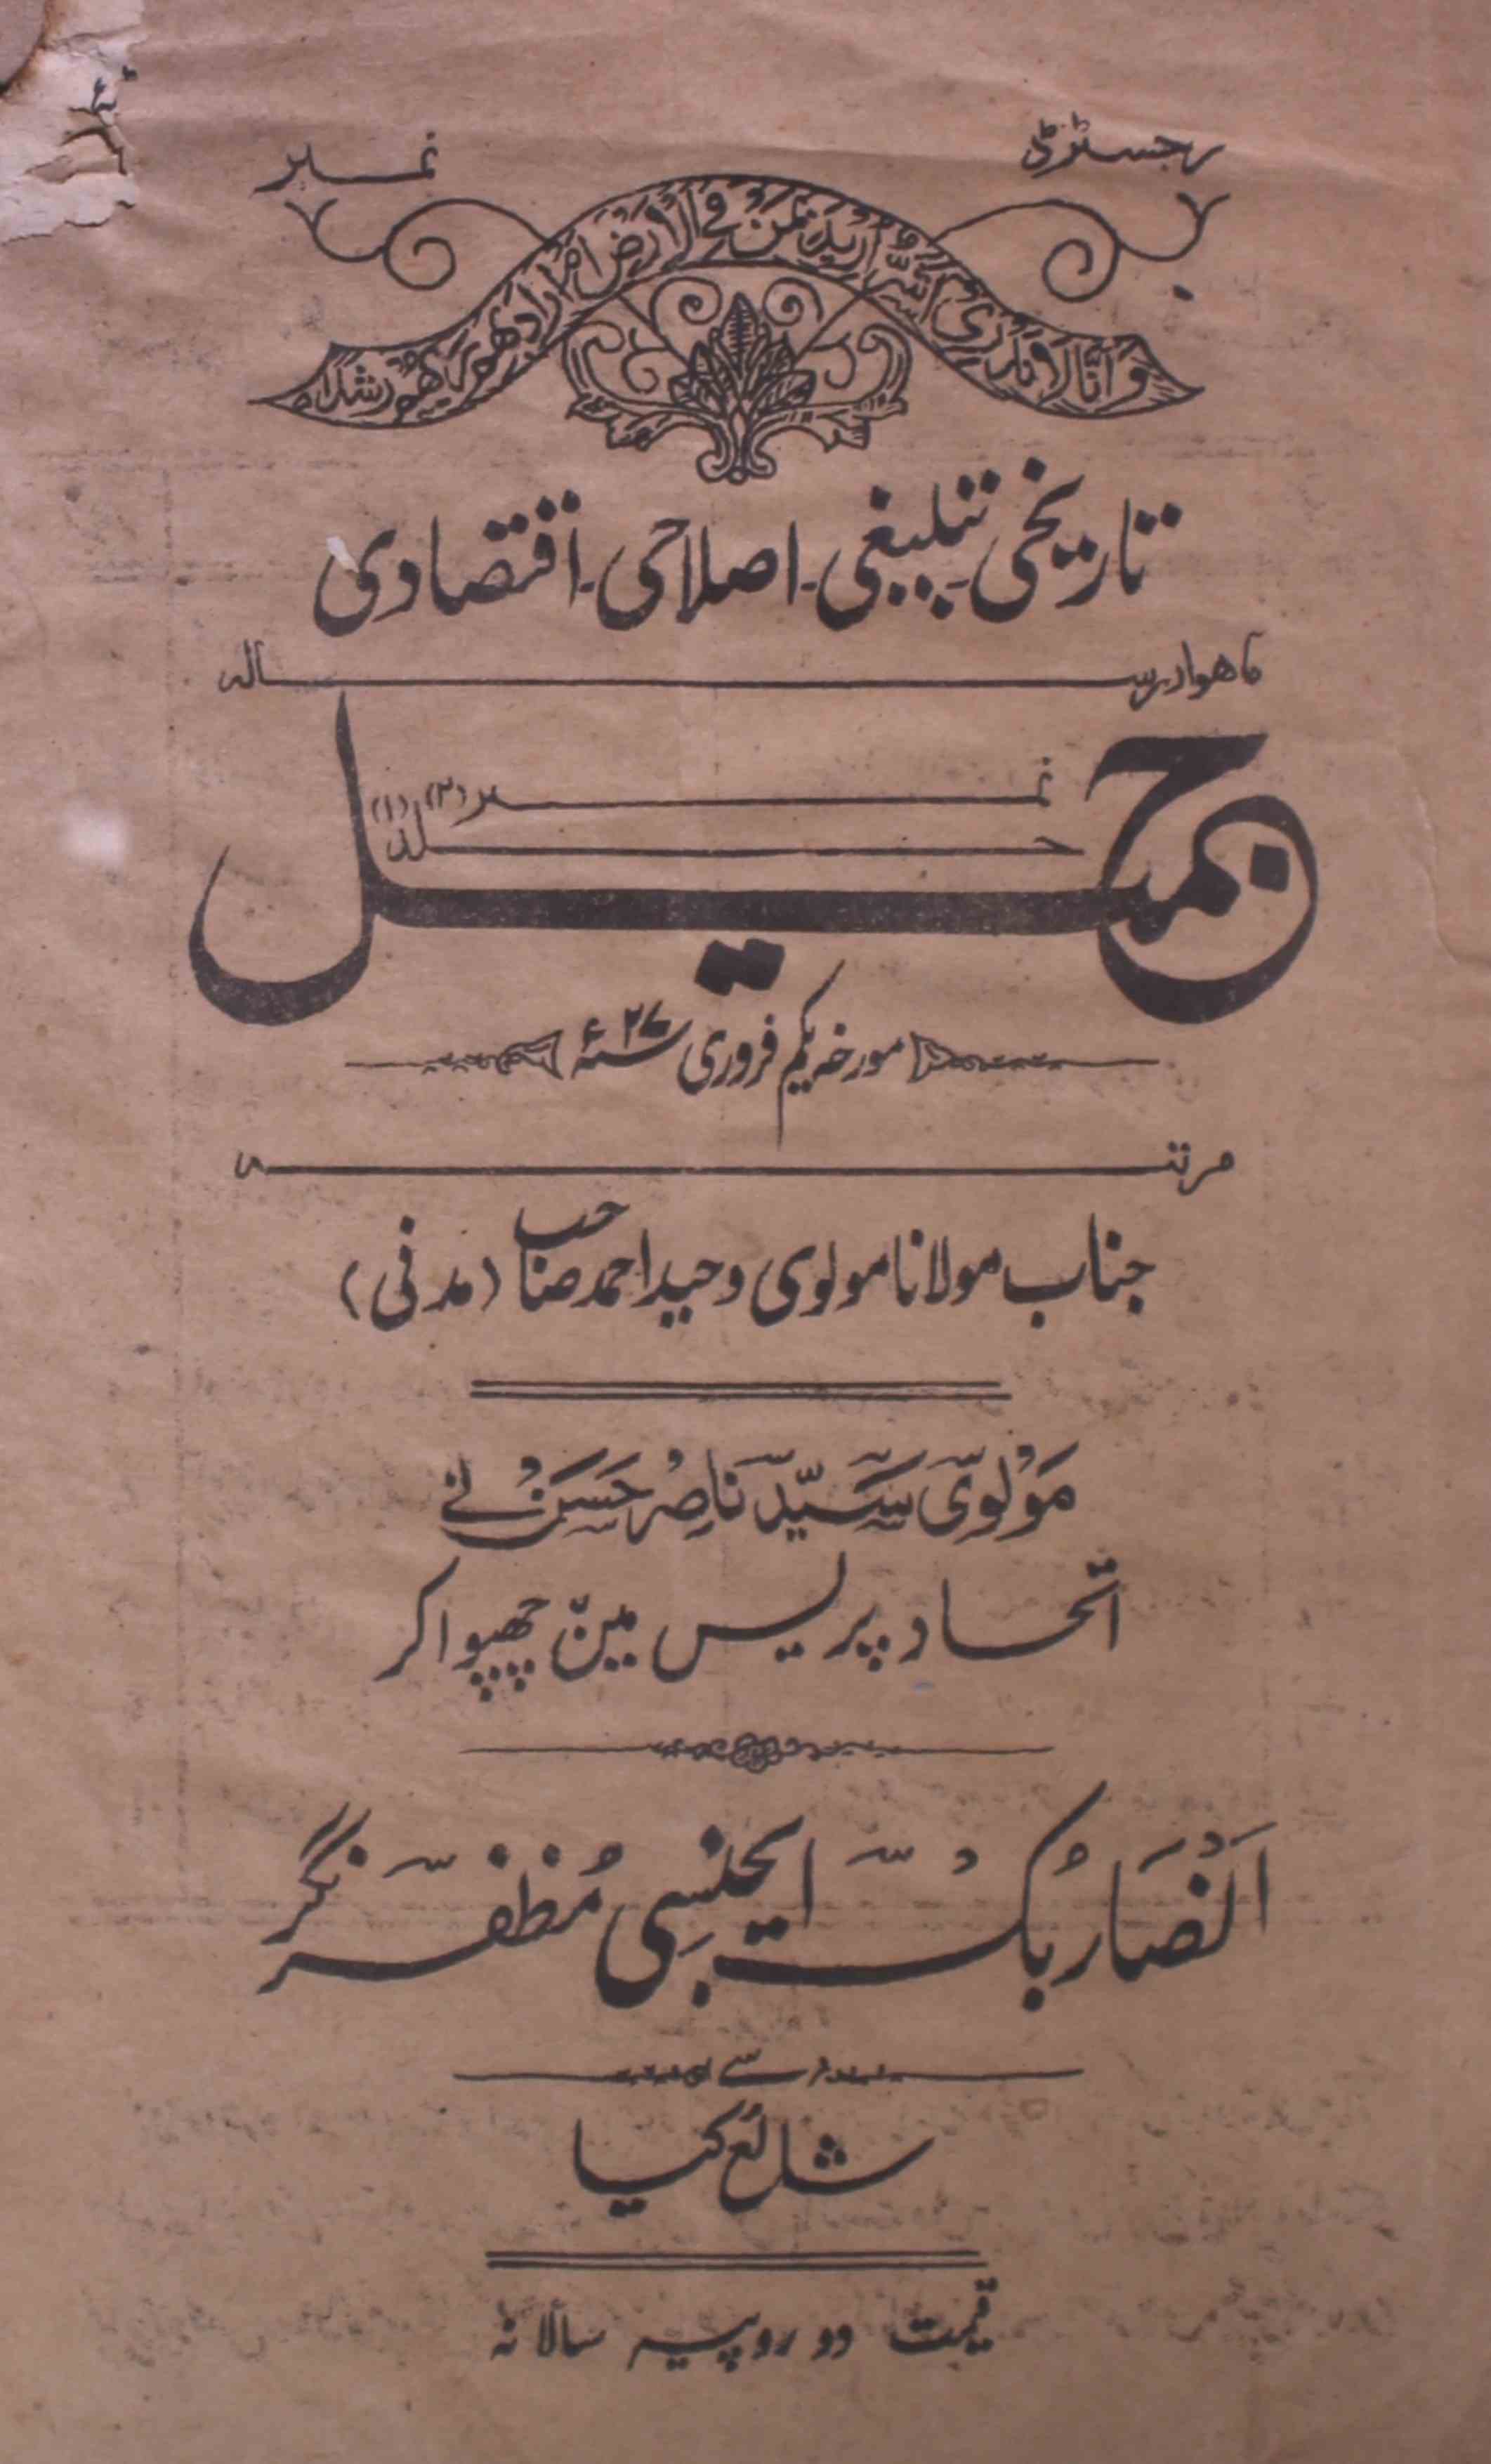 رجسٹرڈ نمبر
وَاَنَّا لَا نَدْرِیْ اَشَرٌّ اُرِیْدَ بِمَنْ فِی الْاَرْضِ اَمْ اَرَادَ بِهِمْ رَبُّهُمْ رَشَدًا
تاریخی تبلیغی ۔ اصلاحی ۔ اقتصادی
ماهوار رسالہ
جمیل
نمبر (۲)
جلد (۱)
مورخہ یکم فروری ۲۷ سنہء
مرتبہ
جناب مولانا مولوی وحید احمد صاحب (مدنی)
مَوْلوی سَیّد ناصِر حَسَنْ نے
اتحاد پریس مین چھپوا کر
اَنْصَار بُک ایجنسِی مُظفّر نگر
سے
شائع کیا
قیمت دو روپیہ سالانہ